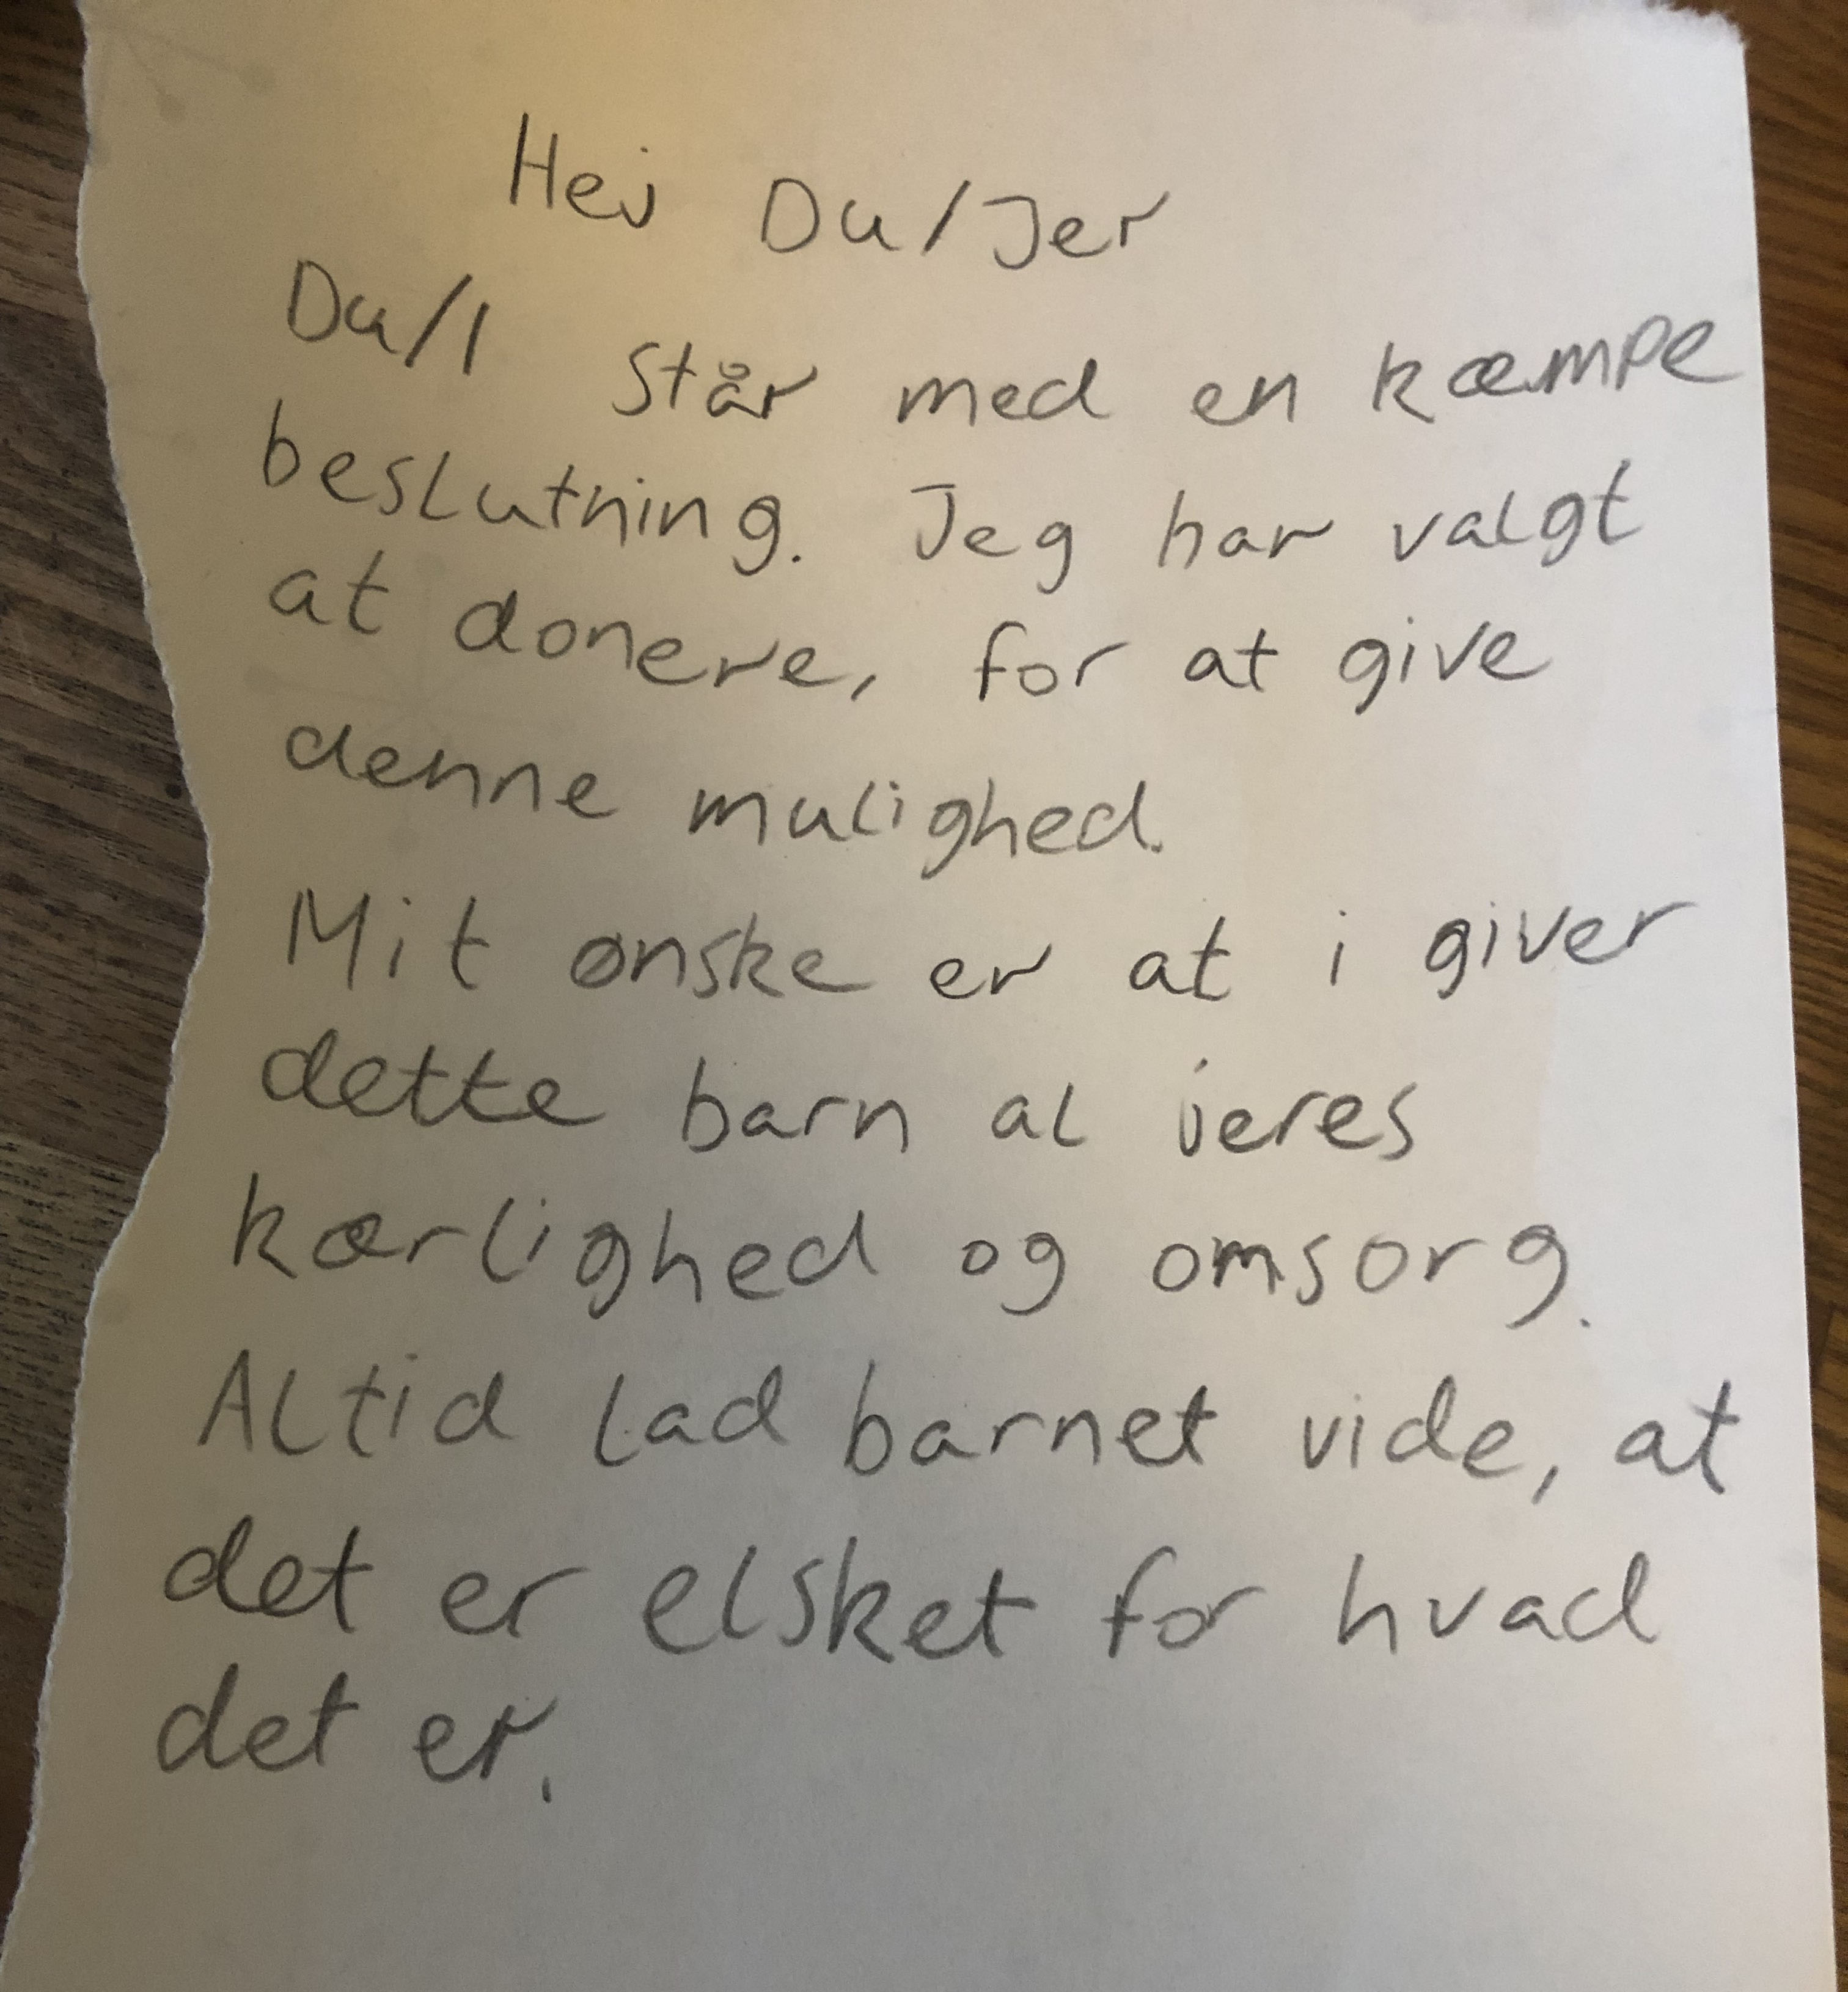 Hej Du/Jer
Du/I står med en kæmpe
beslutning. Jeg har valgt
at donere, for at give
denne mulighed.
Mit ønske er at i giver
dette barn al jeres
kærlighed og omsorg.
Altid lad barnet vide, at
det er elsket for hvad
det er.